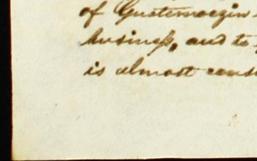 of Guatemozin
business, and to
is almost cons